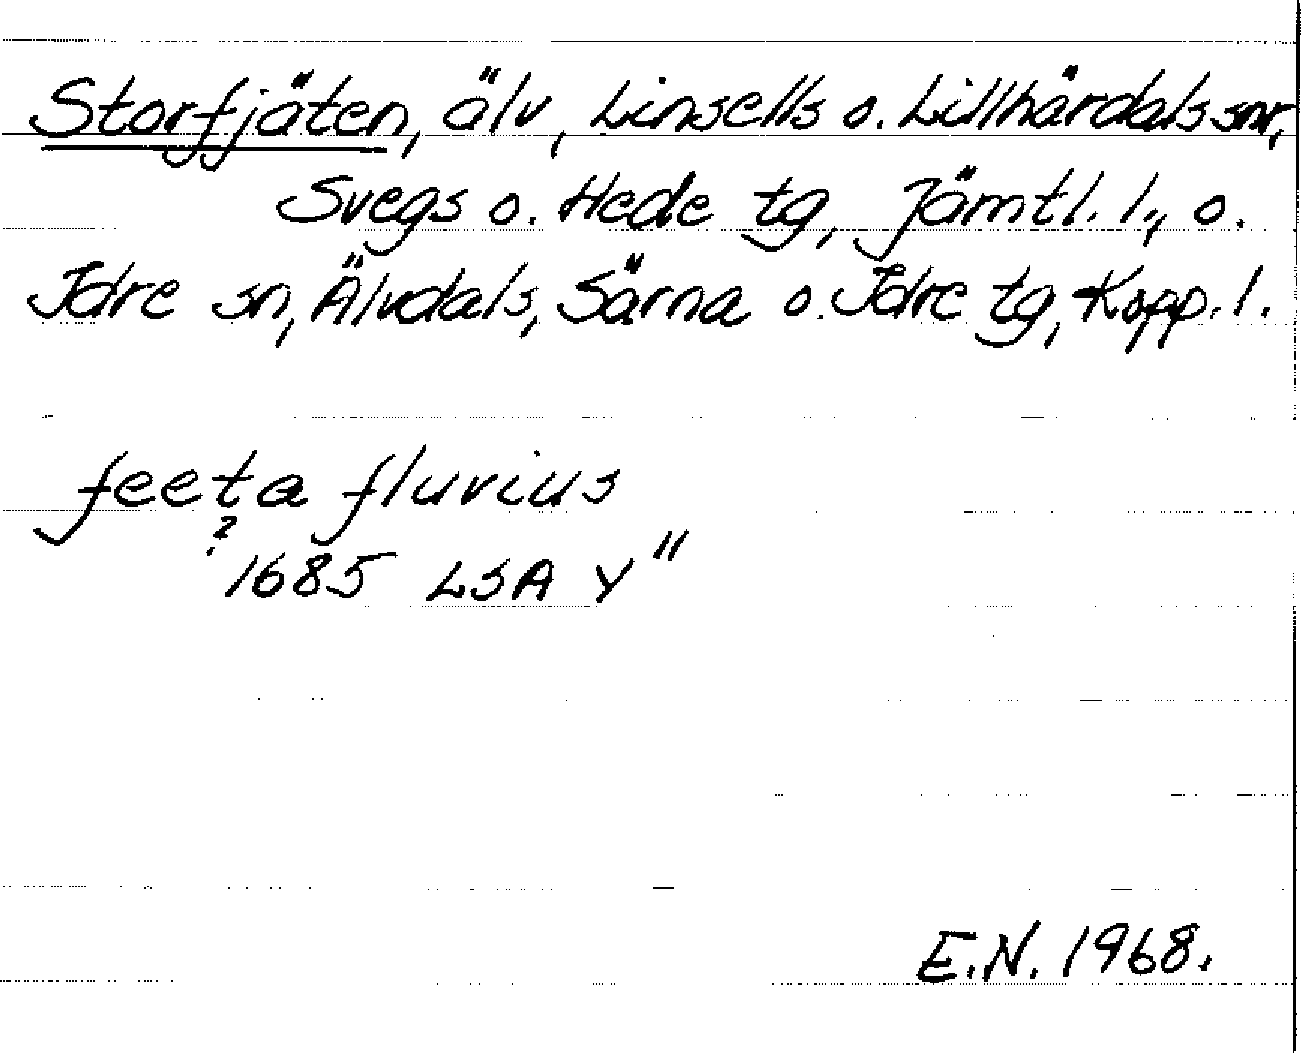 Storfjäten, älv, Linsells o. Lillhärdals snr,
Svegs o. Hede tg, Jämtl. l., o.
Idre sn, Älvdals, Särna o. Idre tg, Kopp. l.
feeta fluvius
?
1685 LSA Y"
E.N. 1968.